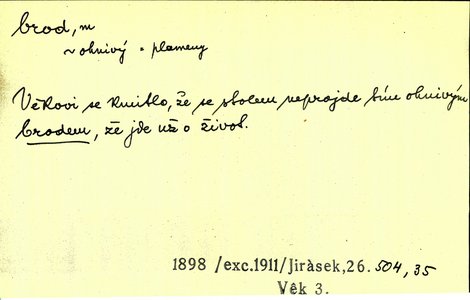 brod, m
~ ohnivý • plameny
Věkovi se kmitlo, že se sborem neprojde tím ohnivým
brodem, že jde už o život.
1898 /exc.1911/Jiràsek,26. 504, 35
Vêk 3.